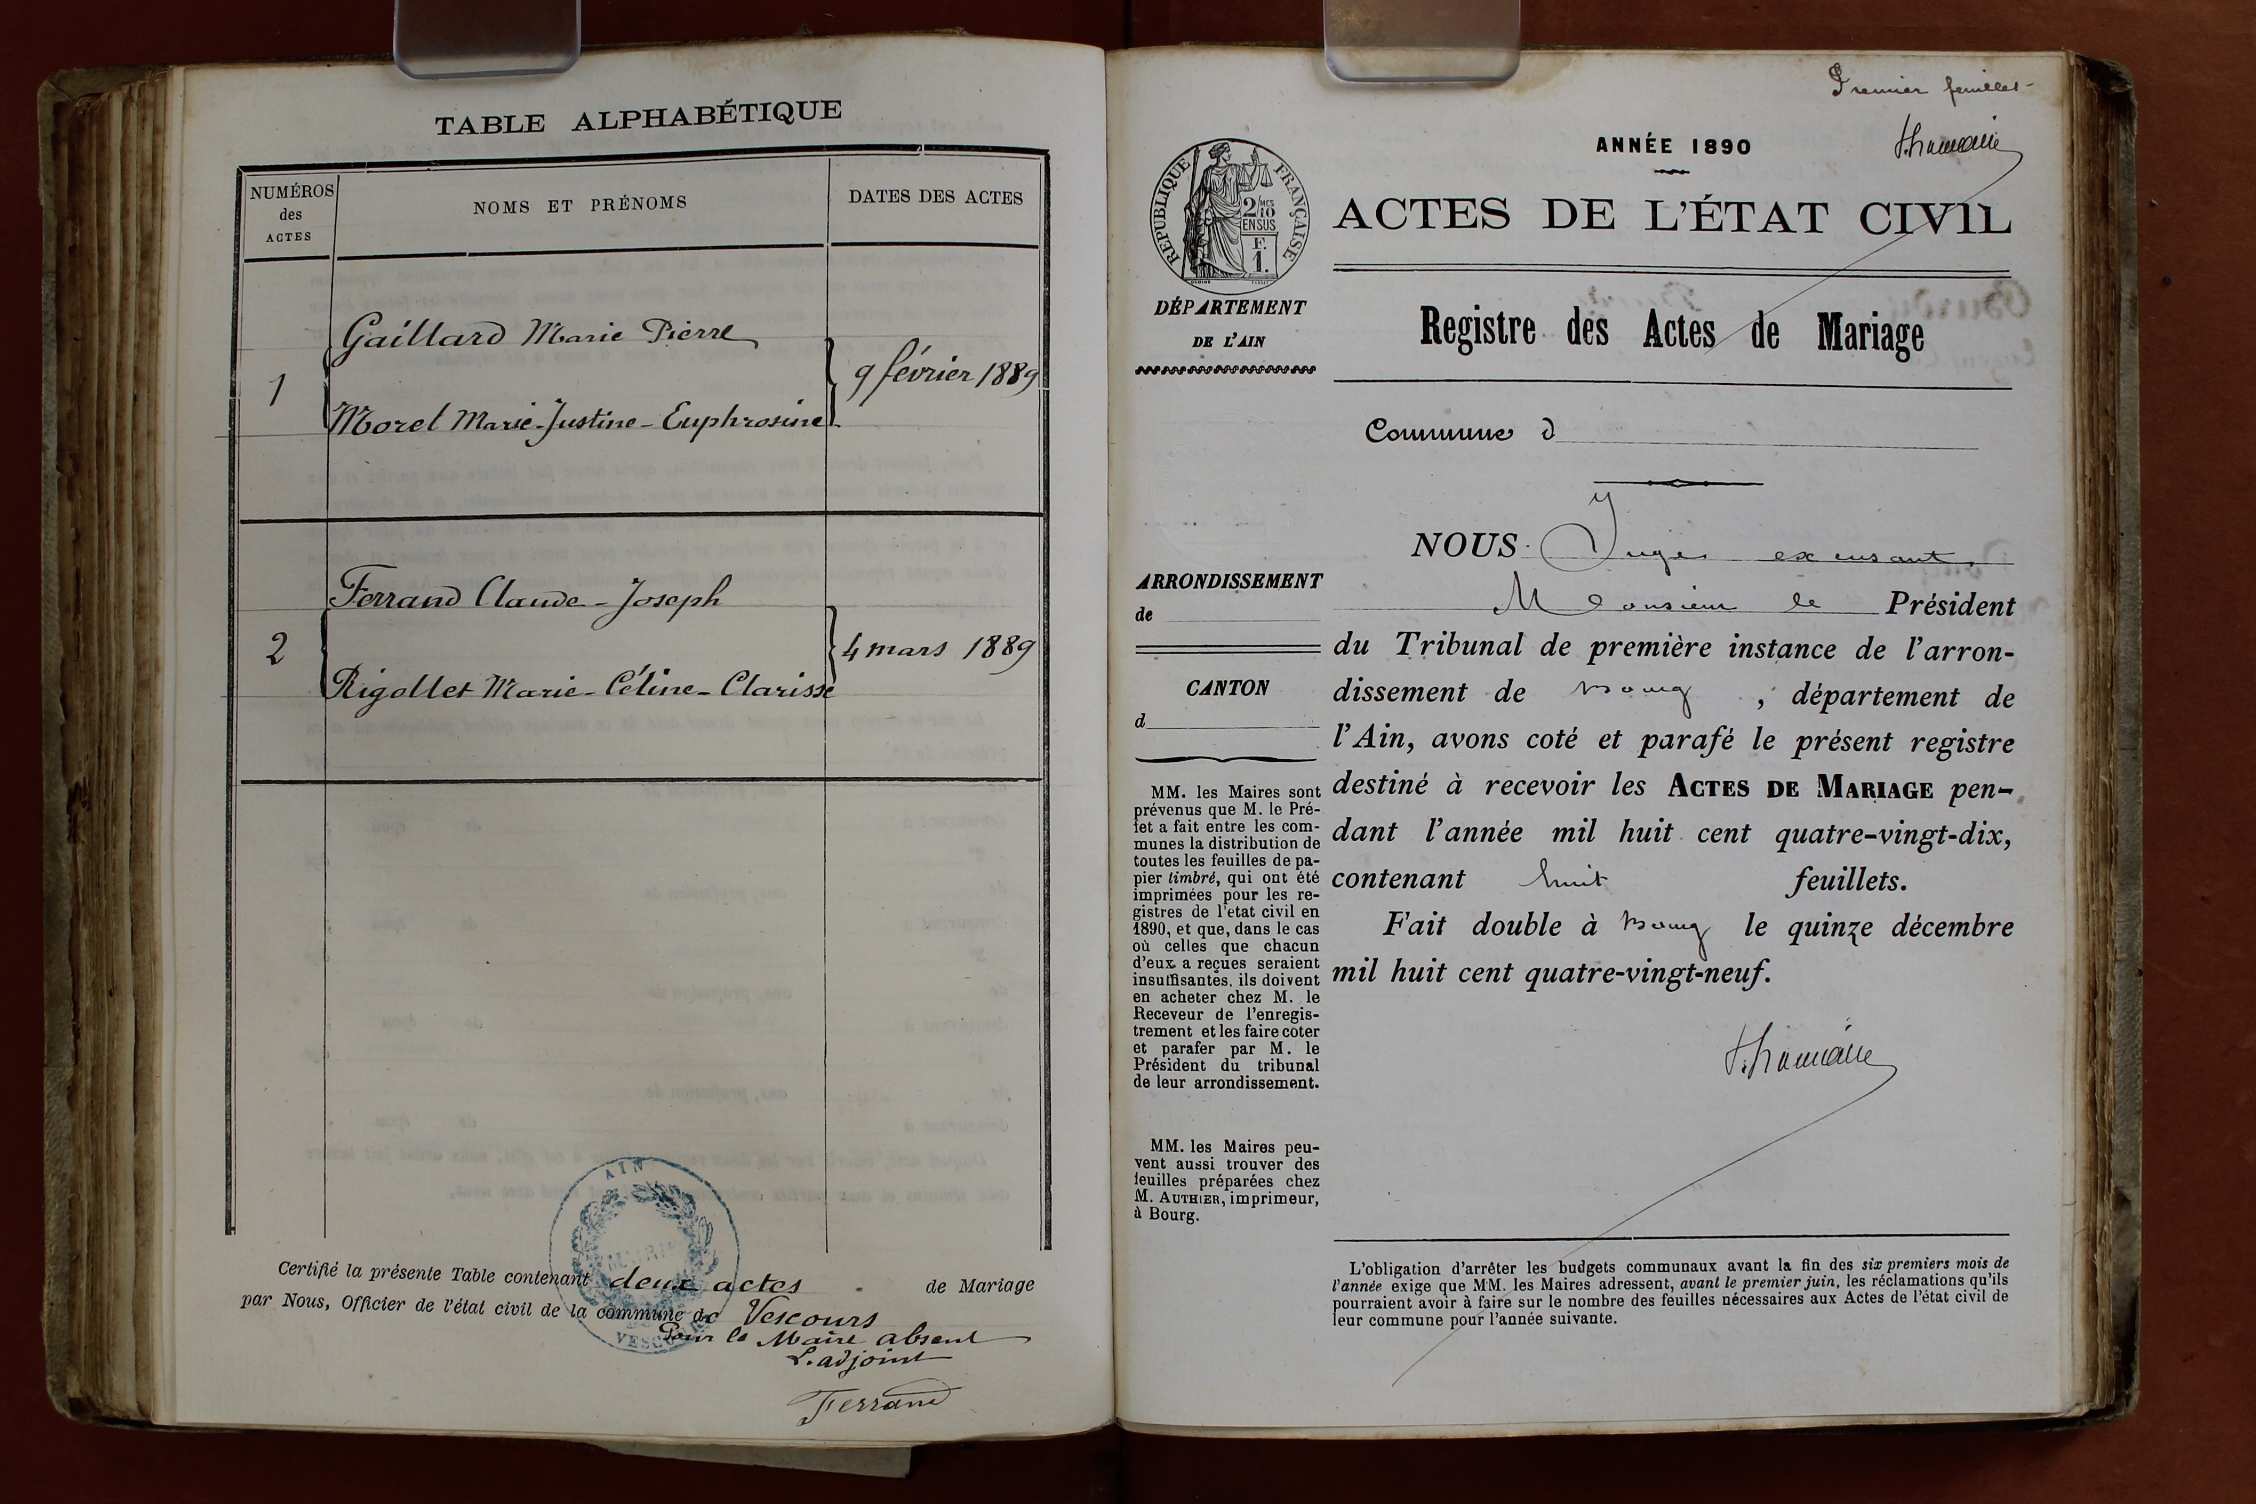 TABLE ALPHABÉTIQUE
NUMÉROS
des
ACTES
NOMS ET PRÉNOMS
DATES DES ACTES
Gaillard Marie Pierre
1
9 février 1889
Morel Marie-Justine-Euphrosine
Ferrand Claude-Joseph
2
4 mars 1889
Rigollet Marie-Céline-Clarisse
AIN
MAIRIE
VESCOURS
Certifié la présente Table contenant deux actes de Mariage
par Nous, Officier de l'état civil de la commune de Vescours
Pour le Maire absent
L'adjoint
Ferrand
Premier feuillet
ANNÉE 1890
RÉPUBLIQUE FRANÇAISE
2/10 MES
EN SUS
F.
1.
ACTES DE L'ÉTAT CIVIL
DÉPARTEMENT
DE L'AIN
Registre des Actes de Mariage
Commune d
NOUS Juge excusant
Monsieur le Président
du Tribunal de première instance de l'arron-
dissement de Bourg, département de
l'Ain, avons coté et parafé le présent registre
destiné à recevoir les ACTES DE MARIAGE pen-
dant l'année mil huit cent quatre-vingt-dix,
contenant huit feuillets.
Fait double à Bourg le quinze décembre
mil huit cent quatre-vingt-neuf.
ARRONDISSEMENT
de
CANTON
d
MM. les Maires sont
prévenus que M. le Pré-
fet a fait entre les com-
munes la distribution de
toutes les feuilles de pa-
pier timbré, qui ont été
imprimées pour les re-
gistres de l'etat civil en
1890, et que, dans le cas
où celles que chacun
d'eux a reçues seraient
insuffisantes, ils doivent
en acheter chez M. le
Receveur de l'enregis-
trement et les faire coter
et parafer par M. le
Président du tribunal
de leur arrondissement.
MM. les Maires peu-
vent aussi trouver des
feuilles préparées chez
M. AUTHIER, imprimeur,
à Bourg.
L'obligation d'arrêter les budgets communaux avant la fin des six premiers mois de
l'année exige que MM. les Maires adressent, avant le premier juin, les réclamations qu'ils
pourraient avoir à faire sur le nombre des feuilles nécessaires aux Actes de l'état civil de
leur commune pour l'année suivante.